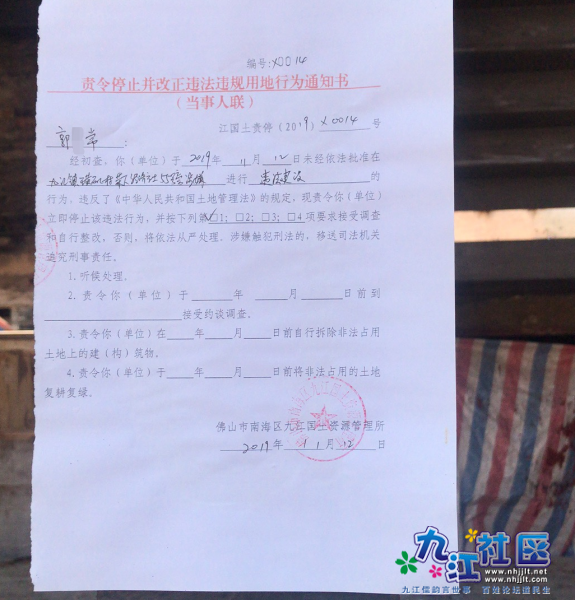 编号:X0014
责令停止并改正违法违规用地行为通知书
（当事人联）
江国土责停（2019）X0014 号
郭 常 ：
经初查，你（单位）于 2019年 11月 12日未经依法批准在
九江镇 进行 违法建设
的行为，违反了《中华人民共和国土地管理法》的规定，现责令你（单位）
立即停止该违法行为，并按下列第☑1；□2；□3；□4项要求接受调查
和自行整改，否则，将依法从严处理。涉嫌触犯刑法的，移送司法机关
追究刑事责任。
1.听候处理。
2.责令你（单位）于 年 月 日前到
接受约谈调查。
3.责令你（单位）在 年 月 日前自行拆除非法占用
土地上的建（构）筑物。
4.责令你（单位）于 年 月 日前将非法占用的土地
复耕复绿。
佛山市南海区九江国土资源管理所
2019年 11月 12日
九江社区
www.nhjjlt.net
www.nhjjlt.com
九江儒韵言世事 百姓论坛话民生